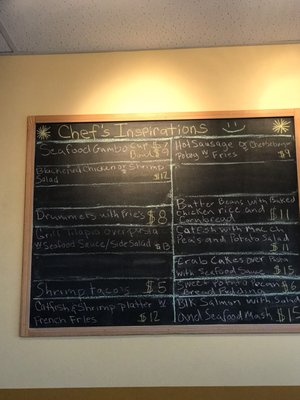 Chef's Inspirations
Seafood Gumbo Cup 7
Bowl $9
Blackened Chicken or Shrimp
Salad $12
Drummers with Fries $8
Grill Tilapia over
w Seafood Sauce/Side Salad $13
Shrimp Tacos $5
Catfish & Shrimp Platter w
French Fries $12
Hot Sausage or Cheeseburger
Poboy w Fries $9
Butter Beans with Baked
Chicken rice and
Cornbread $11
Catfish with Macch
Peas and Potato Salad
$11
Crab Cakes over Pasta
with Seafood Sauce $15
Sweet Potato Pecan $6
Bread Pudding
Blk Salmon with Salad
and Seafood Mash $15